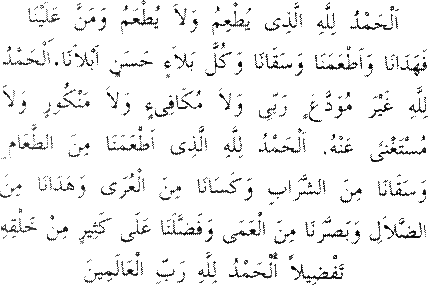 اَلْحَمْدُ لِلَّهِ الَّذِى يُطْعِمُ وَلاَ يُطْعَمُ وَمَنَّ عَلَيْنَا
فَهَدَانَا وَاَطْعَمَنَا وَسَقَانَا وَكُلَّ بَلاَءٍ حَسَنٍ اَبْلاَنَا. اَلْحَمْدُ
لِلَّهِ غَيْرَ مُوَدَّعٍ رَبِّي وَلاَ مُكَافِىءٍ وَلاَ مَنْكُورٍ وَلاَ
مُسْتَغْنىً عَنْهُ. اَلْحَمْدُ لِلَّهِ الَّذِى اَطْعَمَنَا مِنَ الطَّعَامِ
وَسَقَانَا مِنَ الشَّرَابِ وَكَسَانَا مِنَ الْعُرَى وَهَدَانَا مِنَ
الضَّلاَلِ وَبَصَّرَنَا مِنَ الْعَمَى وَفَضَّلَنَا عَلَى كَثِيرٍ مِنْ خَلْقِهِ
تَفْضِيلاً اَلْحَمْدُ لِلَّهِ رَبِّ الْعَالَمِينَ